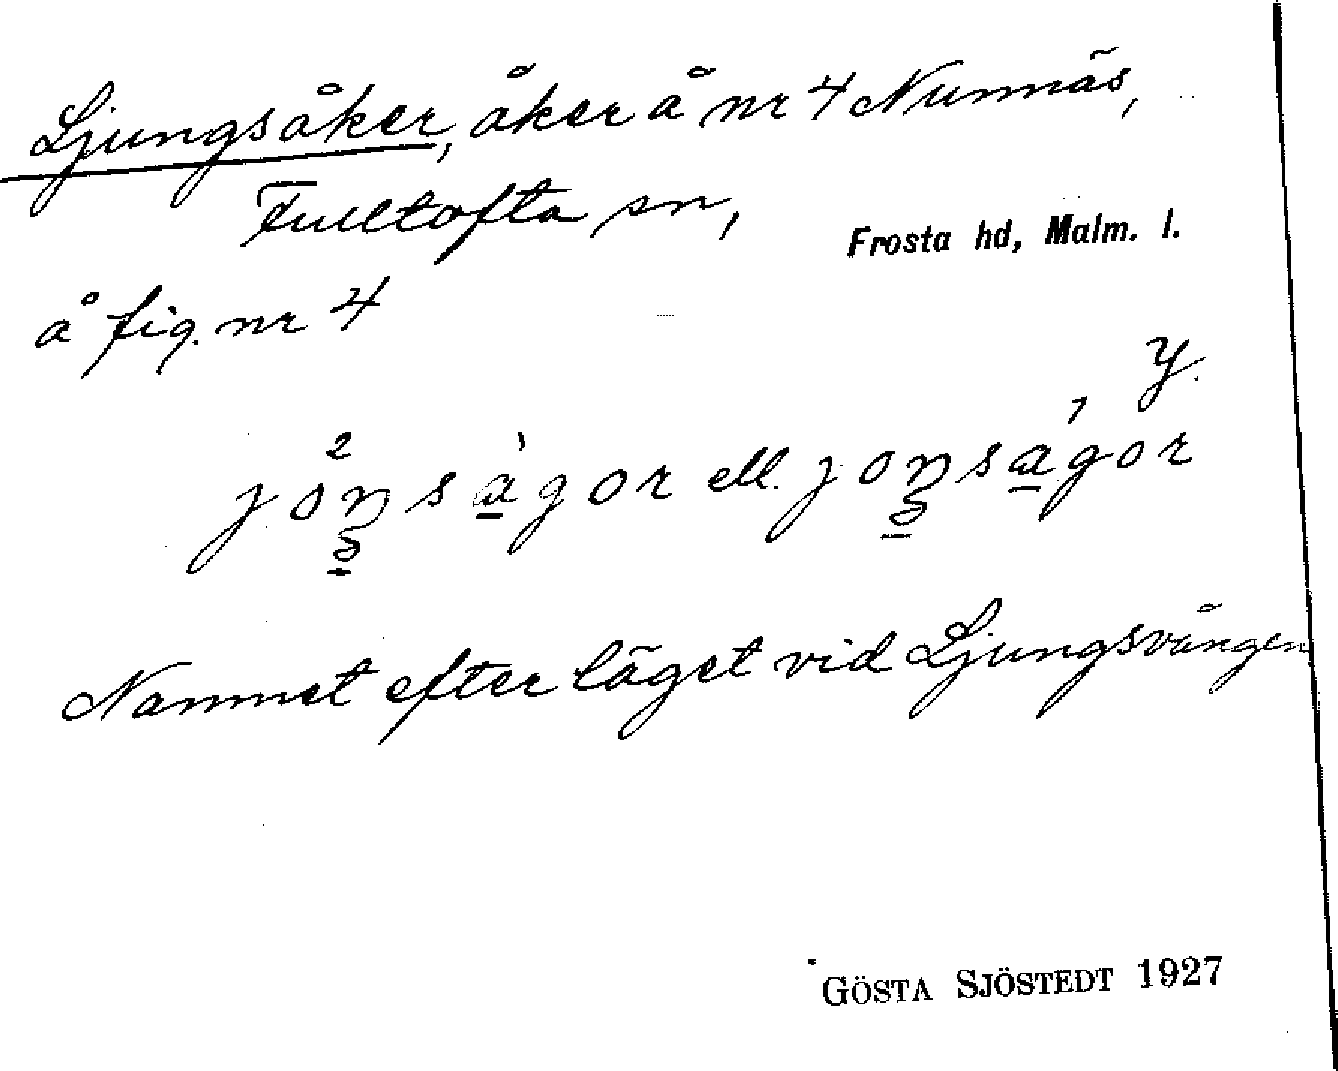 Ljungsåker, åker å nr 4 Nunnäs,
Fulltofta sn,
Frosta hd, Malm. l.
å fig. nr 4
y.
ell.
Namnet efter läget vid Ljungsvången
GÖSTA SJÖSTEDT 1927